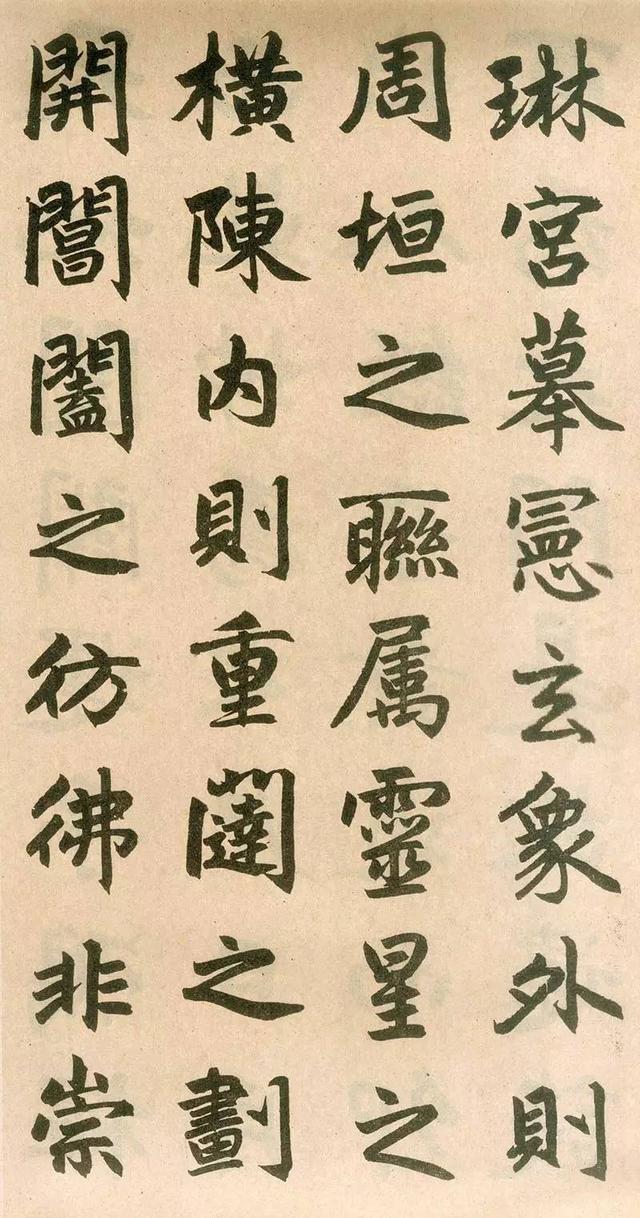 琳宮摹憲玄象外則
周垣之聮属靈星之
橫陳内則重闥之劃
開閶闔之彷彿非崇